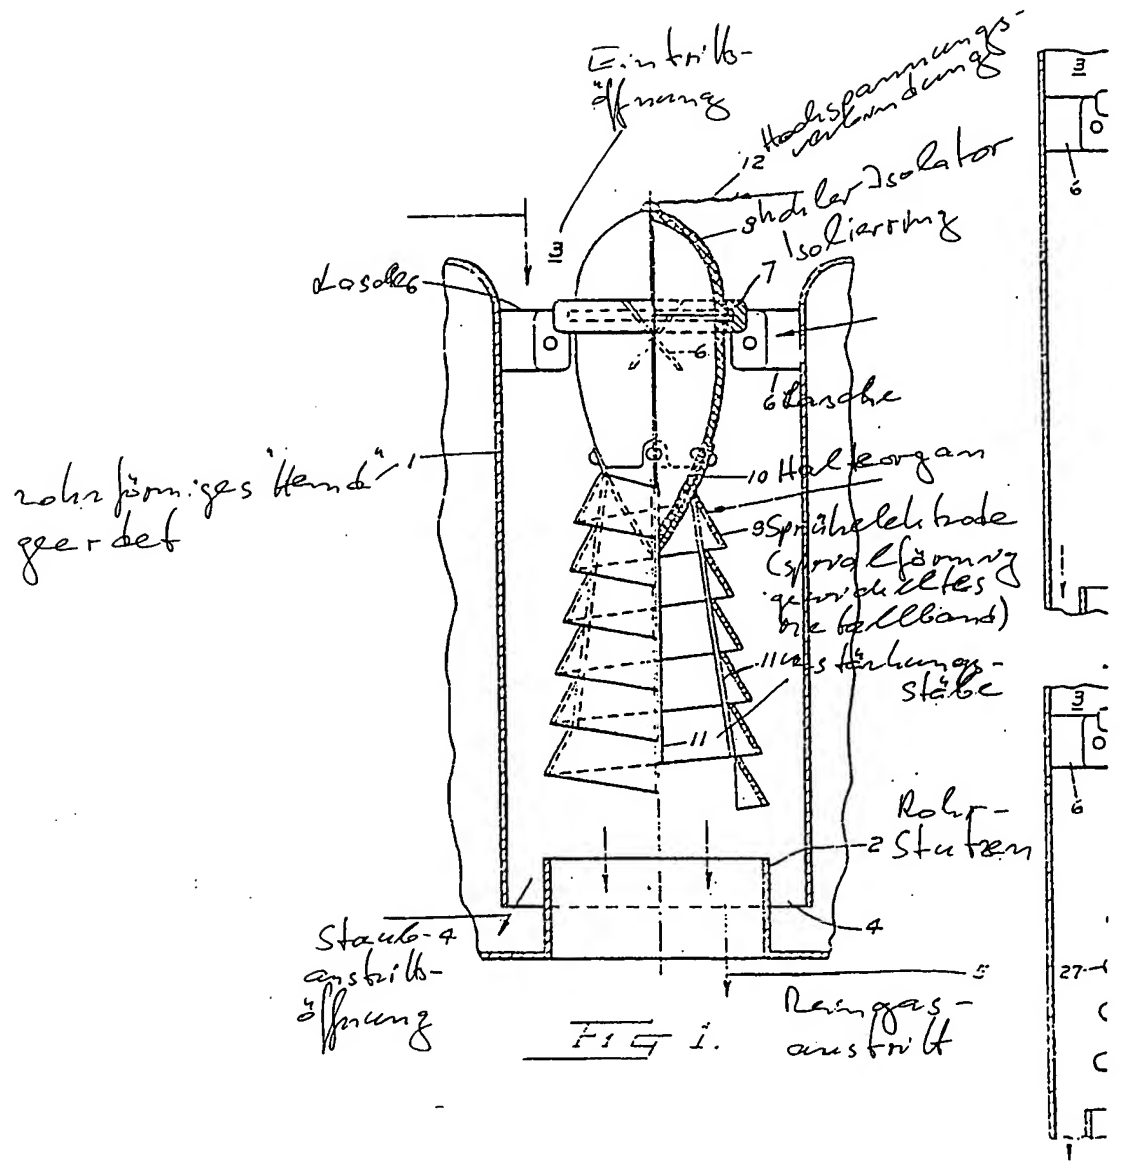 Eintritts-
öffnung
12 Hochspannungs-
verbindung
8 hohler Isolator
Isolierring
7
3
Lasche 6
6
6 Lasche
rohrförmiges "Hemd" 1
geerdet
10 Halteorgan
9 Sprühelektrode
(spiralförmig
gewickeltes
Metallband)
11 Verstärkungs-
stäbe
11
Rohr-
2 Stutzen
4
Staub- 4
austritts-
öffnung
5
Reingas-
austritt
FIG 1.
3
6
3
6
27